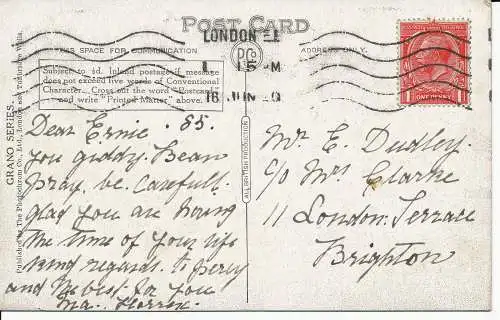 POST CARD
THIS SPACE FOR COMMUNICATION
ADDRESS ONLY.
LONDON E1
15 PM
16 JUN
Subject to ½d. Inland postage if message
does not exceed five words of Conventional
Character. Cross out the word "Postcard"
and write "Printed Matter" above.
ONE PENNY
GRANO SERIES.
Published by The Photochrom Co., Ltd., London and Tunbridge Wells.
ALL BRITISH PRODUCTION
Dear Ernie . 85.
you giddy Bean
pray be carefull
glad you are having
the time of your life
kind regards to Percy
and the best for you
Ma.
Mr E. Dudley.
c/o Mrs Clarke
11 London Terrace
Brighton